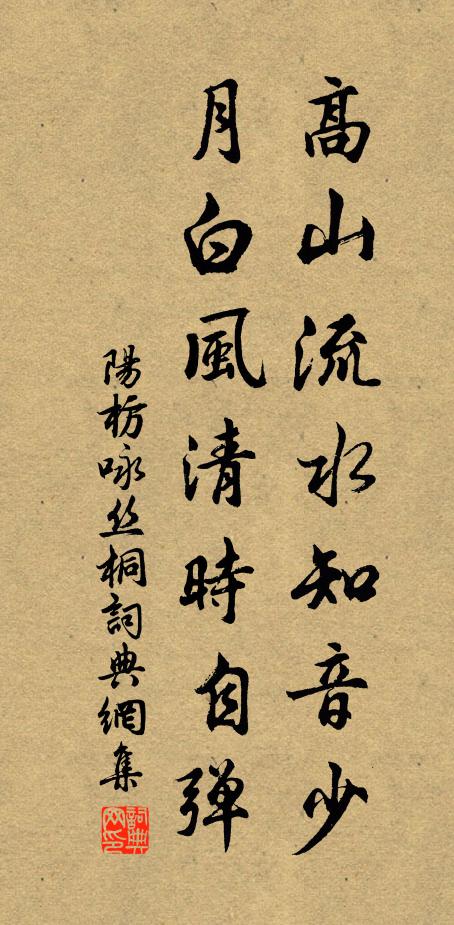 高山流水知音少
月白風清時自彈
陽枋咏丝桐詞典網集
詞典網印